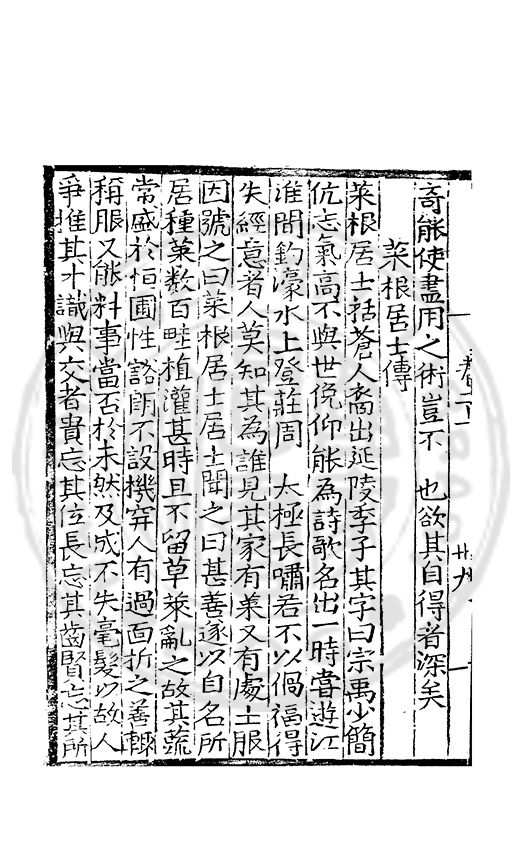 卷一下
卅九
奇能使盡用之術豈不　也欲其自得者深矣
菜根居士傳
菜根居士括蒼人裔出延陵季子其字曰宗禹少簡
伉志氣高不與世俛仰能為詩歌名出一時嘗遊江
淮間釣濠水上登莊周　太極長嘯若不以禍福得
失經意者人莫知其為誰見其家有菜又有處士服
因號之曰菜根居士居士聞之曰甚善遂以自名所
居種菜數百畦植灌甚時且不留草萊亂之故其蔬
常盛於恒圃性豁朗不設機穽人有過面折之善輙
稱服又能料事當否於未然及成不失毫髮以故人
爭推其才識與交者貴忘其位長忘其齒賢忘其所